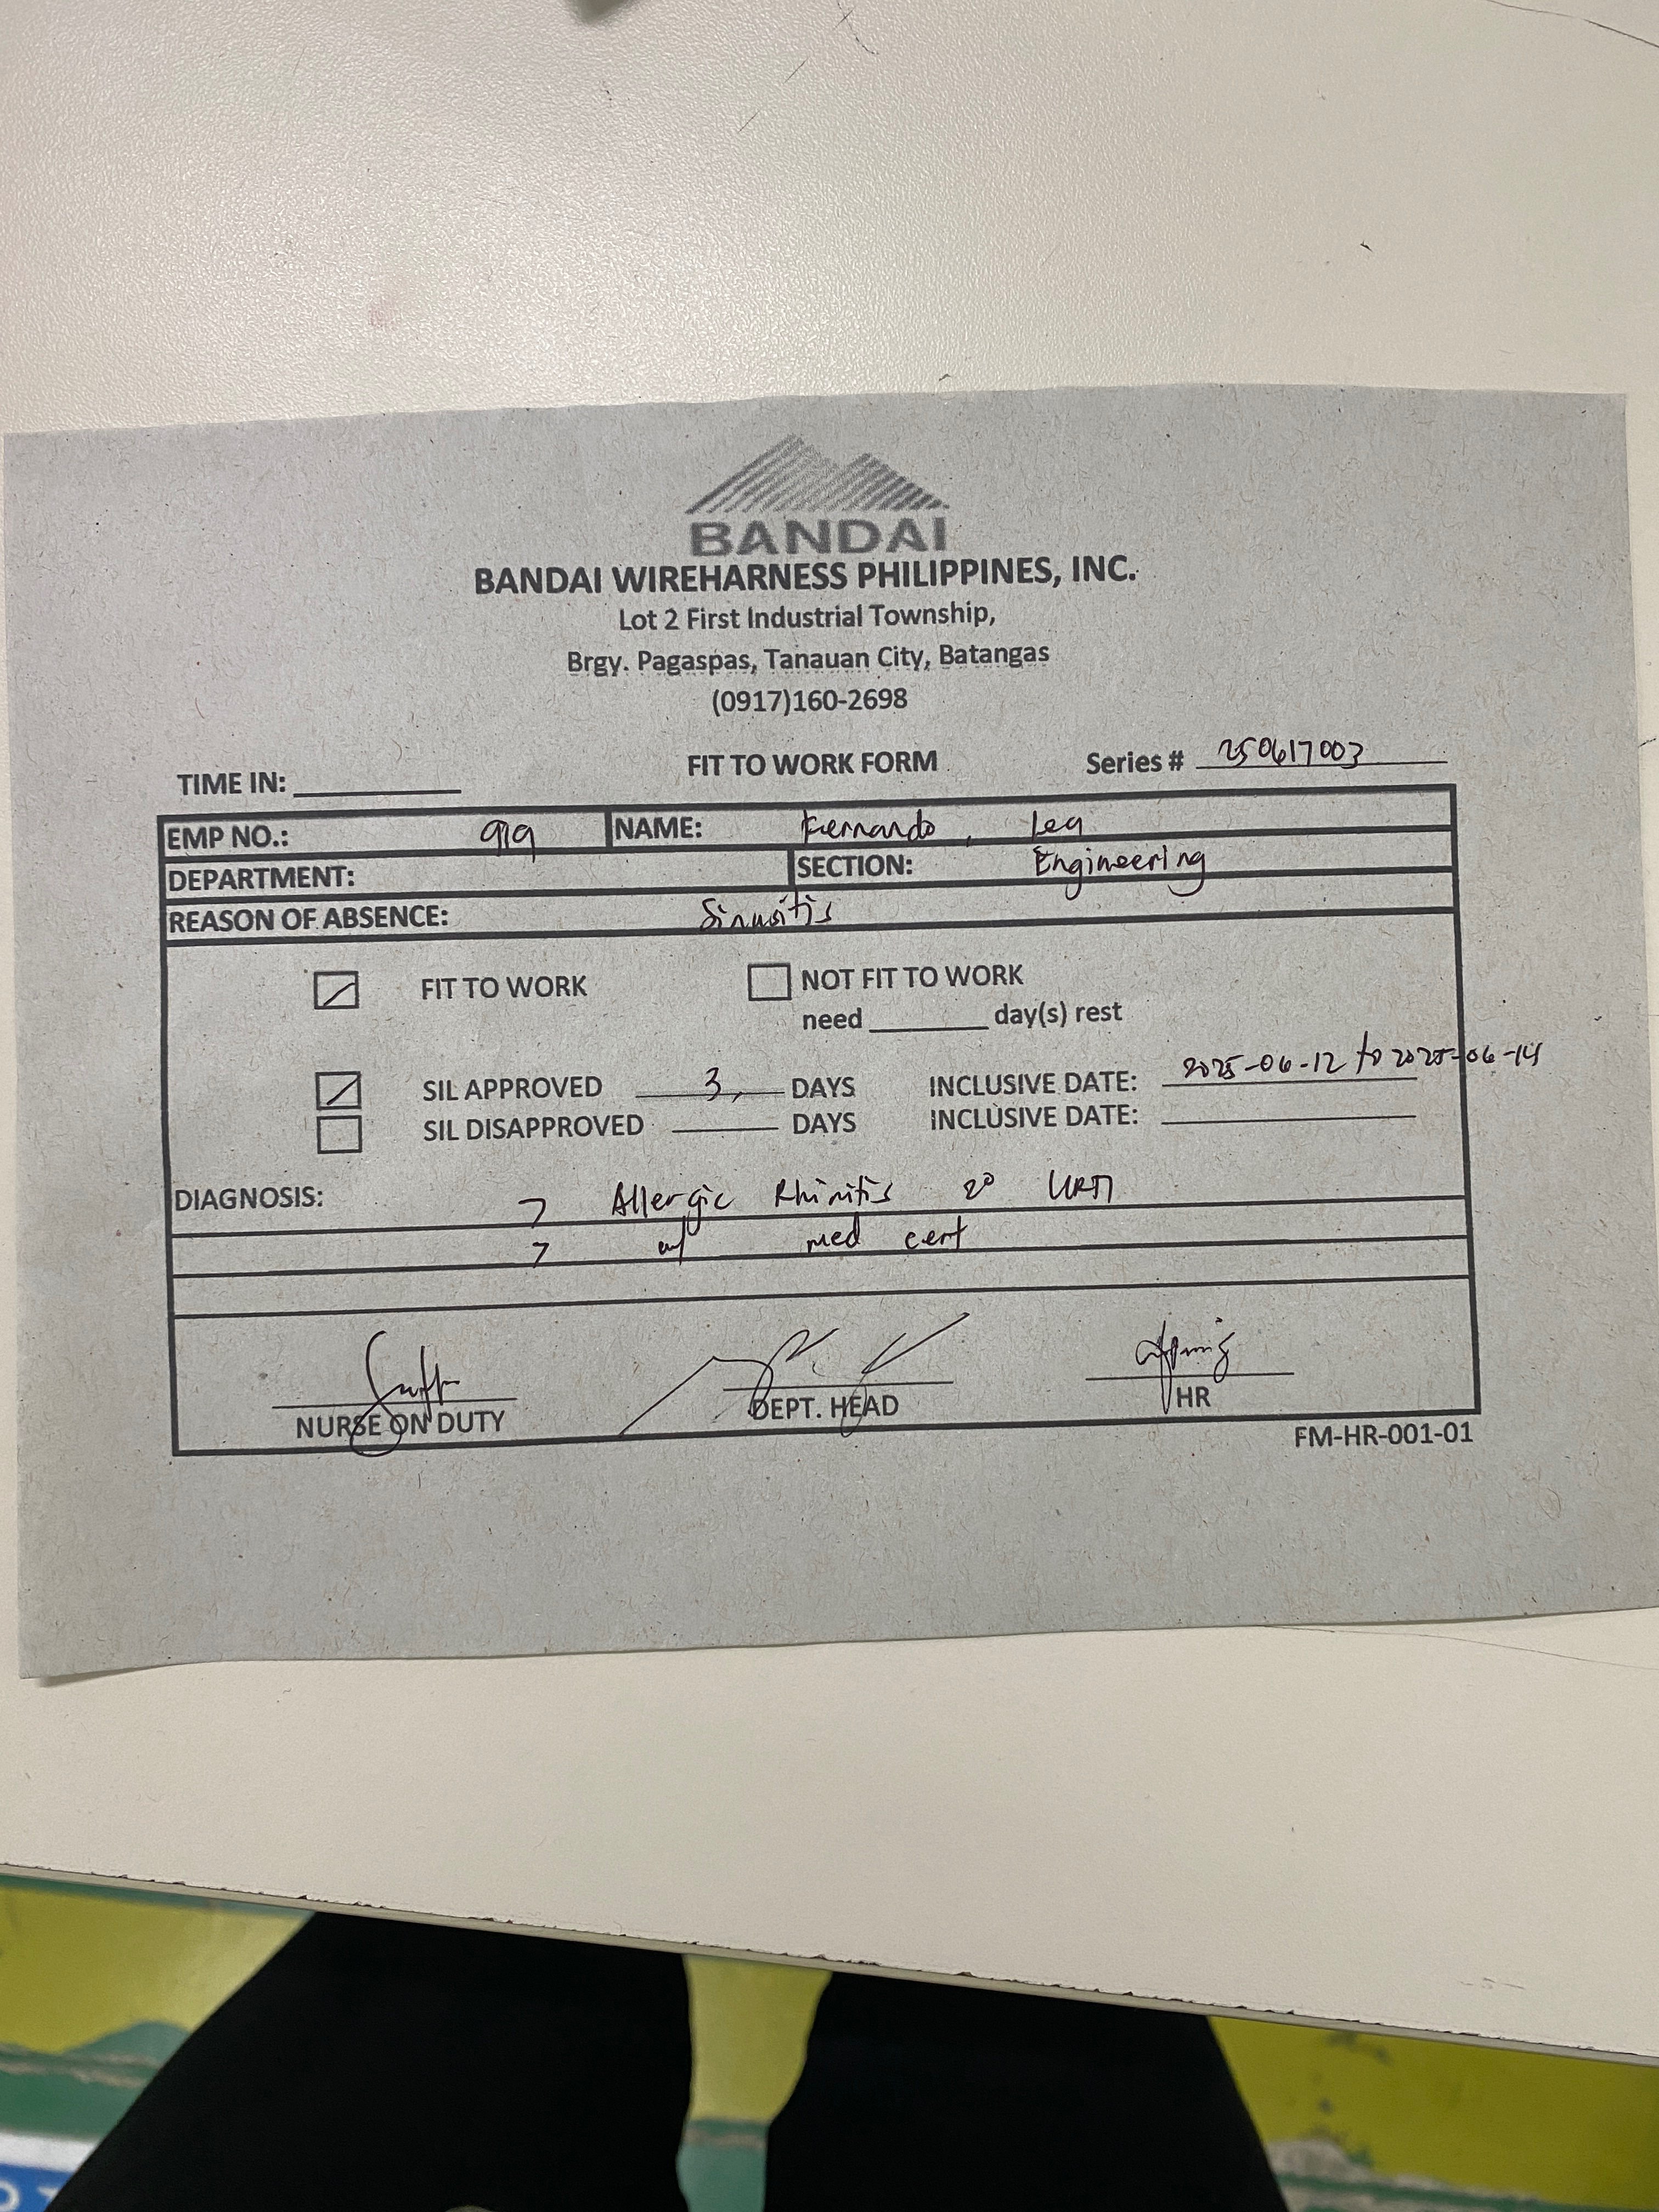 BANDAI
BANDAI WIREHARNESS PHILIPPINES, INC.
Lot 2 First Industrial Township,
Brgy. Pagaspas, Tanauan City, Batangas
(0917)160-2698
TIME IN: FIT TO WORK FORM Series # 250617003
EMP NO.: 919 NAME: Fernando, Lea
DEPARTMENT: SECTION: Engineering
REASON OF ABSENCE: Sinusitis
FIT TO WORK NOT FIT TO WORK
need ______ day(s) rest
SIL APPROVED 3 DAYS INCLUSIVE DATE: 2025-06-12 to 2025-06-14
SIL DISAPPROVED ______ DAYS INCLUSIVE DATE:
DIAGNOSIS: > Allergic Rhinitis 2° URTI
> w/ med cert
NURSE ON DUTY DEPT. HEAD HR
FM-HR-001-01